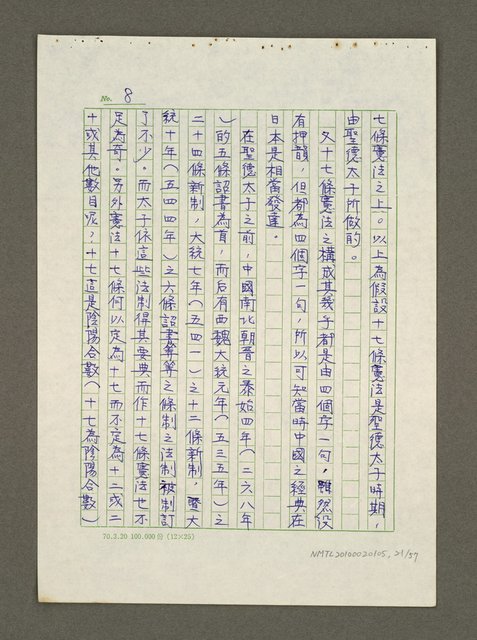 No. 8
七條憲法之上。以上為假設十七條憲法是聖德太子時期，
由聖德太子所做的。
又十七條憲法之構成其幾乎都是由四個字一句，雖然沒
有押韻，但都為四個字一句，所以可知當時中國之經典在
日本是相當發達。
在聖德太子之前，中國南北朝晉之泰始四年（二六八年
）的五條詔書為首，而后有西魏大統元年（五三五年）之
二十四條新制，大統七年（五四一）之十二條新制，暨大
統十年（五四四年）之六條詔書等等之條制之法制被制訂
了不少。而太子依這些法制得其要典而作十七條憲法也不
足為奇。另外憲法十七條何以定為十七而不定為十二或二
十或其他數目呢？十七這是陰陽合數（十七為陰陽合數）
70.3.20 100.000份 (12×25)
NMTL20100020105, 21/37